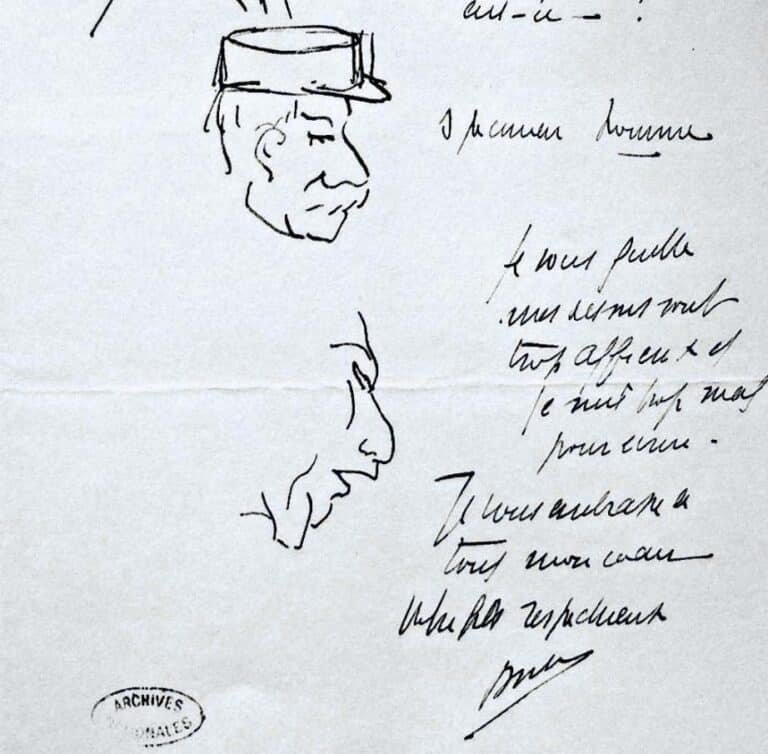 est-ce - ?
specimen homme
Je vous quitte
mes dessins sont
trop affreux et
je suis trop mal
pour écrire -
Je vous embrasse de
tout mon cœur
Votre fils respectueux
ARCHIVES
NATIONALES